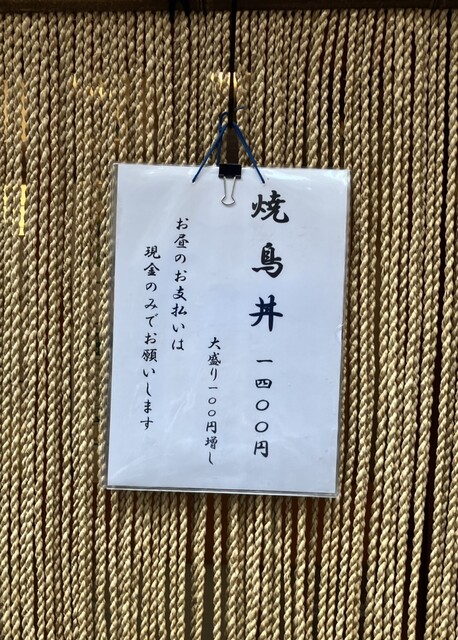 焼鳥丼 一四〇〇円
大盛り一〇〇円増し
お昼のお支払いは
現金のみでお願いします